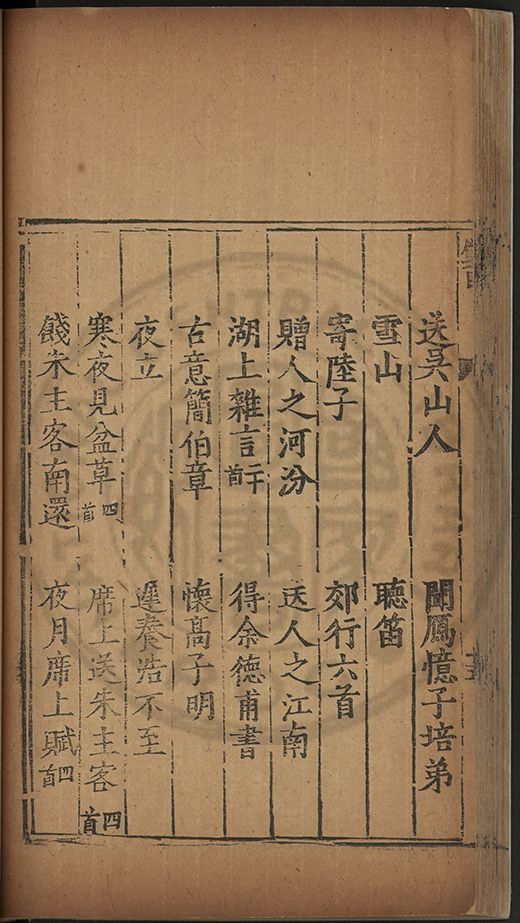 送吳山人 聞鴈憶子培弟
雪山 聽笛
寄陸子 郊行六首
贈人之河汾 送人之江南
湖上雜言二十首 得余德甫書
古意簡伯章 懷高子明
夜立 遲養浩不至
寒夜見盆草四首 席上送朱主客四首
餞朱主客南還 夜月席上賦四首